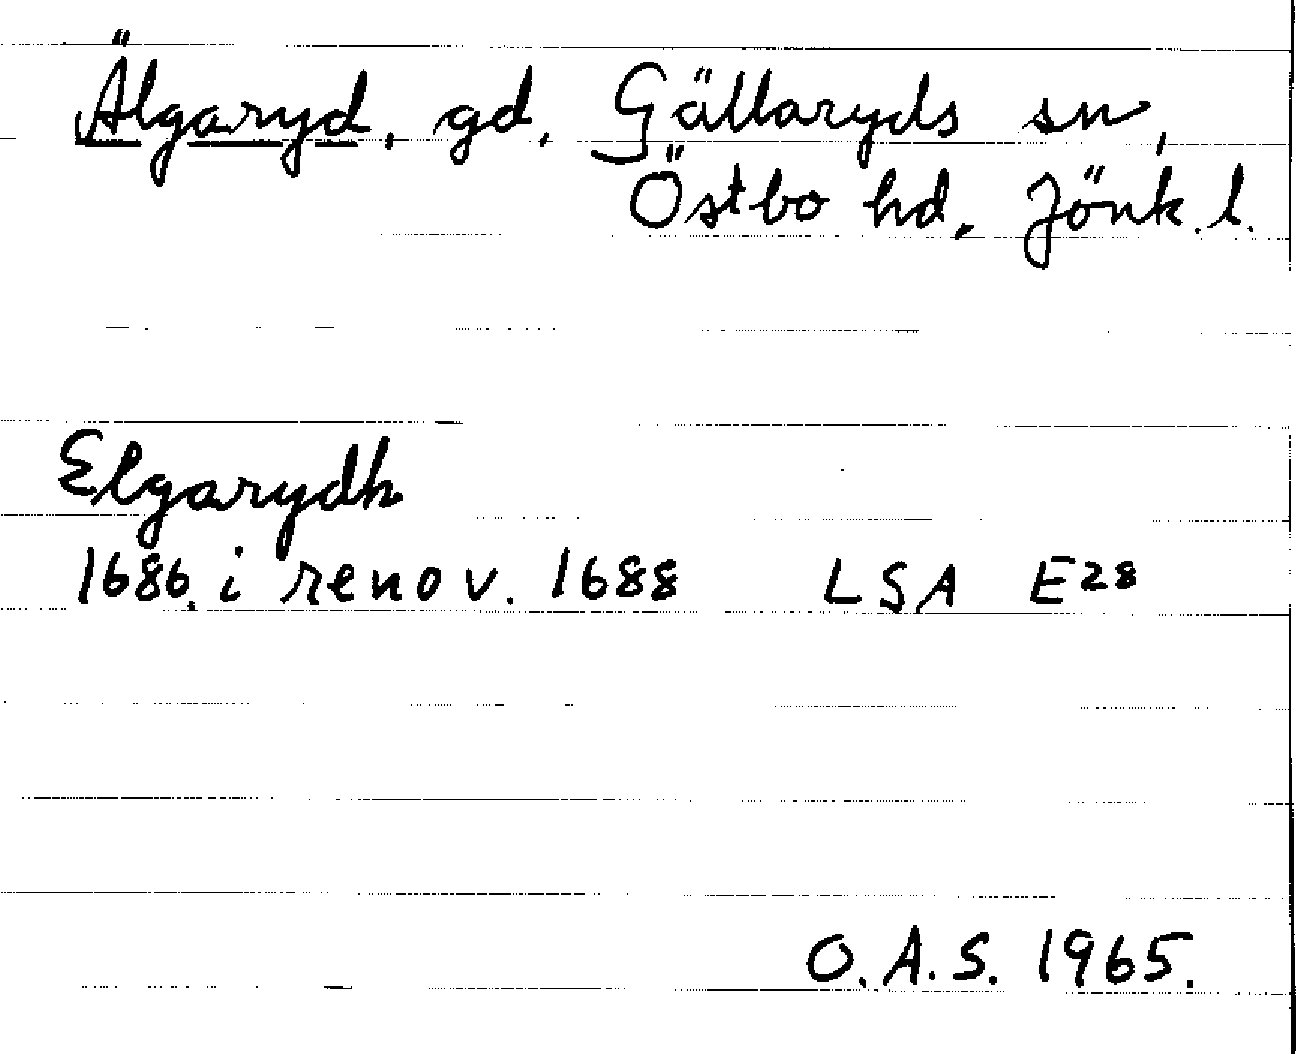 Älgaryd, gd, Gällaryds sn,
Östbo hd, Jönk. l.
Elgarydh
1686 i renov. 1688 LSA E28
O.A.S. 1965.